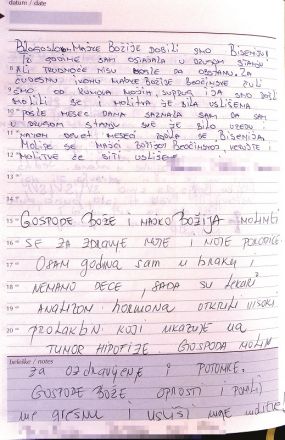 datum / date
Blagoslovom MAJKE BOŽIJE DOBILI SMO BISENIJU
TRI GODINE SAM OSTAJALA U DRUGOM STANJU
8 ALI TRUDNOĆE NISU MOGLE DA OBSTANU. ZA
ČUDESNU IKONU MAJKE BOŽIJE BEOČINSKE ČULI
9 SMO OD KUMOVA MOJIH, SUPRUG I JA SMO DOŠLI
MOLILI SE I MOLITVA JE BILA USLIŠENA
10 POSLE MESEC DANA SAZNALA SAM DA SAM
U DRUGOM STANJU SVE JE BILO UREDU
11 NAKON DEVET MESECI RODILA SE BISENIJA.
MOLITE SE MAJCI BOŽIJOJ BEOČINSKOJ VERUJTE I
12 MOLITVE ĆE BITI USLIŠENE
13
14
15 GOSPODE BOŽE I MAJKO BOŽIJA MOLIM TI
16 SE ZA ZDRAVJE MOJE I MOJE PORODICE.
17 OSAM GODINA SAM U BRAKU I
18 NEMAMO DECE, SADA SU LEKARI
19 ANALIZOM HORMONA OTKRILI VISOKI
20 PROLAKTIN KOJI UKAZUJE NA
TUMOR HIPOFIZE. GOSPODA MOLIM
beleške / notes
ZA OZDRAVLJENJE I POTOMKE.
GOSPODE BOŽE OPROSTI I POMILUJ
me grešnu i usliši moje molitve!